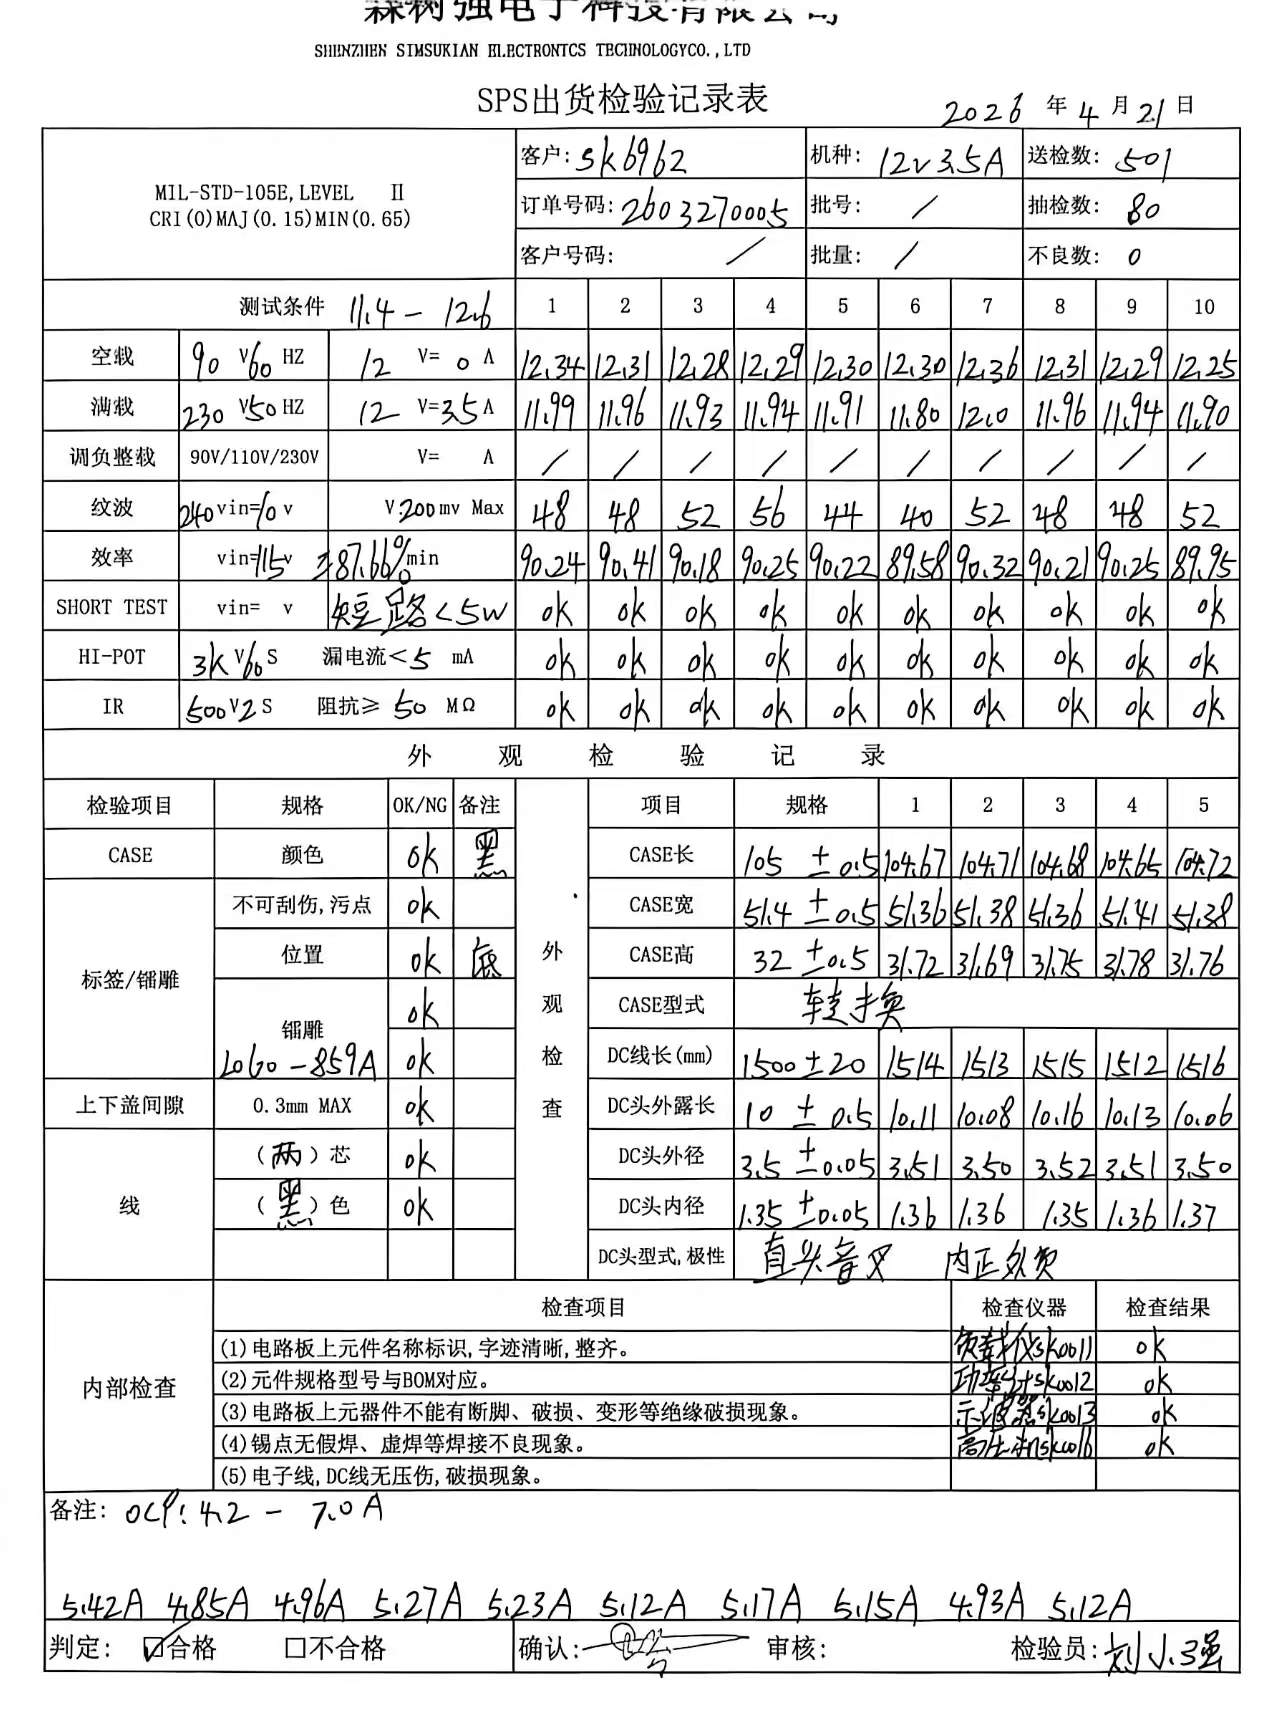 森树强电子科技有限公司
SHENZHEN SIMSUKIAN ELECTRONTCS TECHNOLOGYCO.,LTD
SPS出货检验记录表
2026 年 4 月 21 日
MIL-STD-105E,LEVEL Ⅱ
CRI(0)MAJ(0.15)MIN(0.65)
客户: SK6962 机种: 12V3.5A 送检数: 501
订单号码: 2603270005 批号: / 抽检数: 80
客户号码: / 批量: / 不良数: 0
测试条件 11.4 - 12.6 1 2 3 4 5 6 7 8 9 10
空载 90 V 60 HZ 12 V= 0 A 12.34 12.31 12.28 12.29 12.30 12.30 12.36 12.31 12.29 12.25
满载 230 V 50 HZ 12 V= 3.5 A 11.99 11.96 11.93 11.94 11.91 11.80 12.0 11.96 11.94 11.90
调负整载 90V/110V/230V V= A / / / / / / / / / /
纹波 240 vin= v V 200 mv Max 48 48 52 56 44 40 52 48 48 52
效率 vin=115v ≥87.66% min 90.24 90.41 90.18 90.25 90.22 89.58 90.32 90.21 90.25 89.95
SHORT TEST vin= v 短路<5W ok ok ok ok ok ok ok ok ok ok
HI-POT 3K V 60 S 漏电流< 5 mA ok ok ok ok ok ok ok ok ok ok
IR 500 V 2 S 阻抗≥ 50 MΩ ok ok ok ok ok ok ok ok ok ok
外 观 检 验 记 录
检验项目 规格 OK/NG 备注 外观检查 项目 规格 1 2 3 4 5
CASE 颜色 ok 黑 CASE长 105 ±0.5 104.67 104.71 104.68 104.65 104.72
标签/镭雕 不可刮伤,污点 ok CASE宽 51.4 ±0.5 51.36 51.38 51.36 51.41 51.38
位置 ok 底 CASE高 32 ±0.5 31.72 31.69 31.75 31.78 31.76
镭雕 ok CASE型式 转换
LOGO-859A ok DC线长(mm) 1500±20 1514 1513 1515 1512 1516
上下盖间隙 0.3mm MAX ok DC头外露长 10 ±0.5 10.11 10.08 10.16 10.13 10.06
线 (两)芯 ok DC头外径 3.5 ±0.05 3.51 3.50 3.52 3.51 3.50
(黑)色 ok DC头内径 1.35 ±0.05 1.36 1.36 1.35 1.36 1.37
DC头型式,极性 直头音叉 内正外负
内部检查 检查项目 检查仪器 检查结果
(1)电路板上元件名称标识,字迹清晰,整齐。 负载仪sk0011 ok
(2)元件规格型号与BOM对应。 功率计sk0012 ok
(3)电路板上元器件不能有断脚、破损、变形等绝缘破损现象。 示波器sk0013 ok
(4)锡点无假焊、虚焊等焊接不良现象。 高压机sk0016 ok
(5)电子线,DC线无压伤,破损现象。
备注: OCP: 4.2 - 7.0A
5.42A 4.85A 4.96A 5.27A 5.23A 5.12A 5.17A 5.15A 4.93A 5.12A
判定: ☑合格 □不合格 确认: 审核: 检验员: 刘小强